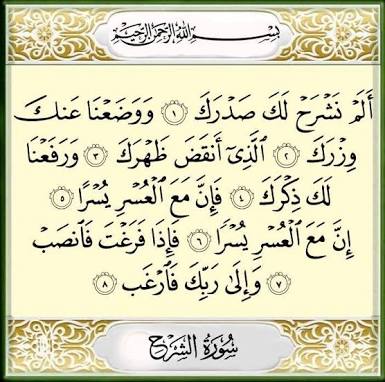 بِسْمِ اللَّهِ الرَّحْمَٰنِ الرَّحِيمِ
أَلَمْ نَشْرَحْ لَكَ صَدْرَكَ ١ وَوَضَعْنَا عَنكَ
وِزْرَكَ ٢ ٱلَّذِىٓ أَنقَضَ ظَهْرَكَ ٣ وَرَفَعْنَا
لَكَ ذِكْرَكَ ٤ فَإِنَّ مَعَ ٱلْعُسْرِ يُسْرًا ٥
إِنَّ مَعَ ٱلْعُسْرِ يُسْرًا ٦ فَإِذَا فَرَغْتَ فَٱنصَبْ
٧ وَإِلَىٰ رَبِّكَ فَٱرْغَب ٨
سُورَةُ الشَّرْحِ